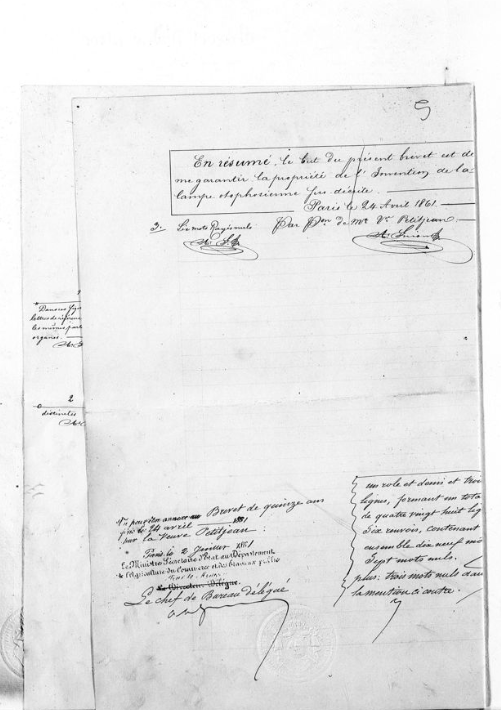 5
En résumé, le but du présent brevet est de
me garantir la propriété de l'Invention de la
lampe
Paris le 24 Avril 1861.
3. Le mots Rayés nuls Par Pon de Me Ve Petitjean
lettres de
les mêmes
organes.
2
distinctes
Brevet de quinze ans
le 24 avril 1861
par la Veuve Petitjean
Paris le 2 Juillet 1861
Le Ministre Secrétaire d'Etat au Département
de l'Agriculture du Commerce et des travaux publics
Le Directeur Délégué
Le chef de Bureau délégué
un role et demi et trois
lignes, formant en tota
de quatre vingt huit lig
Six renvois, contenant
ensemble dix neuf mo
Sept mots nuls.
plus: trois mots nuls dans
la mention ci contre.